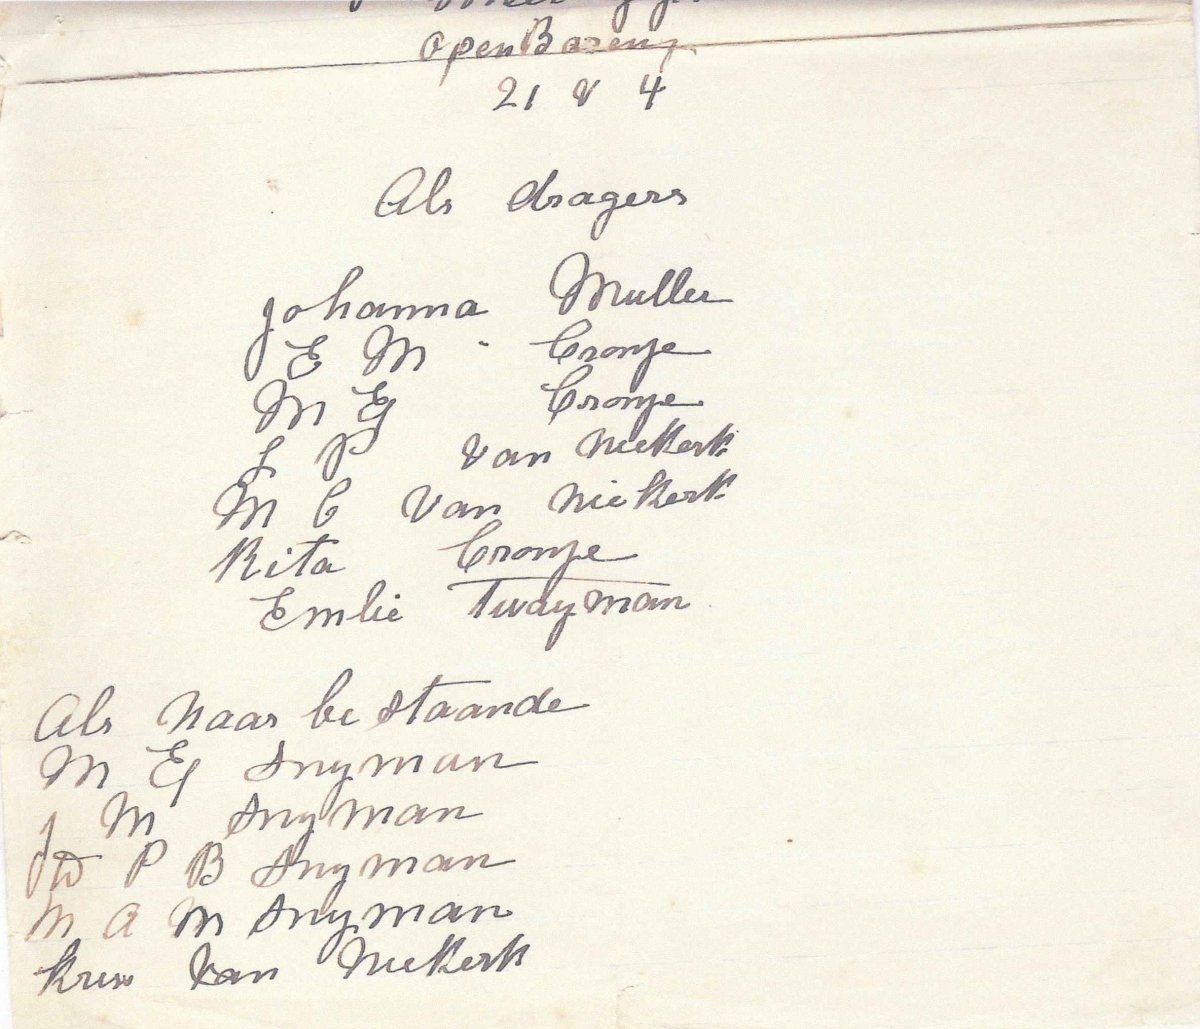 Open Bareng
21 v 4
Als dragers
Johanna Muller
E M Cronje
M E Cronje
L P van Niekerk
M C Van Niekerk
Rita Cronje
Emlie Twayman
Als Naas be staande
M E Snyman
J M Snyman
D P B Snyman
M A M Snyman
van Niekerk